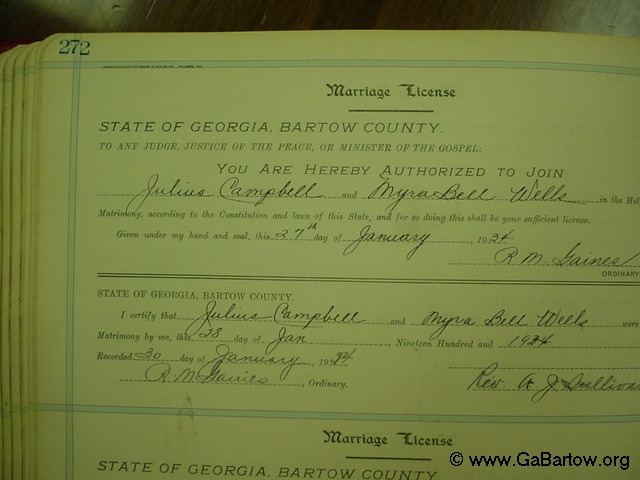 272
Marriage License
STATE OF GEORGIA, BARTOW COUNTY.
TO ANY JUDGE, JUSTICE OF THE PEACE, OR MINISTER OF THE GOSPEL:
YOU ARE HEREBY AUTHORIZED TO JOIN
Julius Campbell and Myra Bell Wells in the Hol
Matrimony, according to the Constitution and laws of this State, and for so doing this shall be your sufficient license.
Given under my hand and seal, this 27th day of January, 1934
R M Gaines
ORDINARY
STATE OF GEORGIA, BARTOW COUNTY.
I certify that Julius Campbell and Myra Bell Wells were
Matrimony by me, this 28 day of Jan, Nineteen Hundred and 1934
Recorded 30 day of January, 1934
R M Gaines, Ordinary.
Rev. A J Sulliva
Marriage License
STATE OF GEORGIA, BARTOW COUNTY.
© www.GaBartow.org